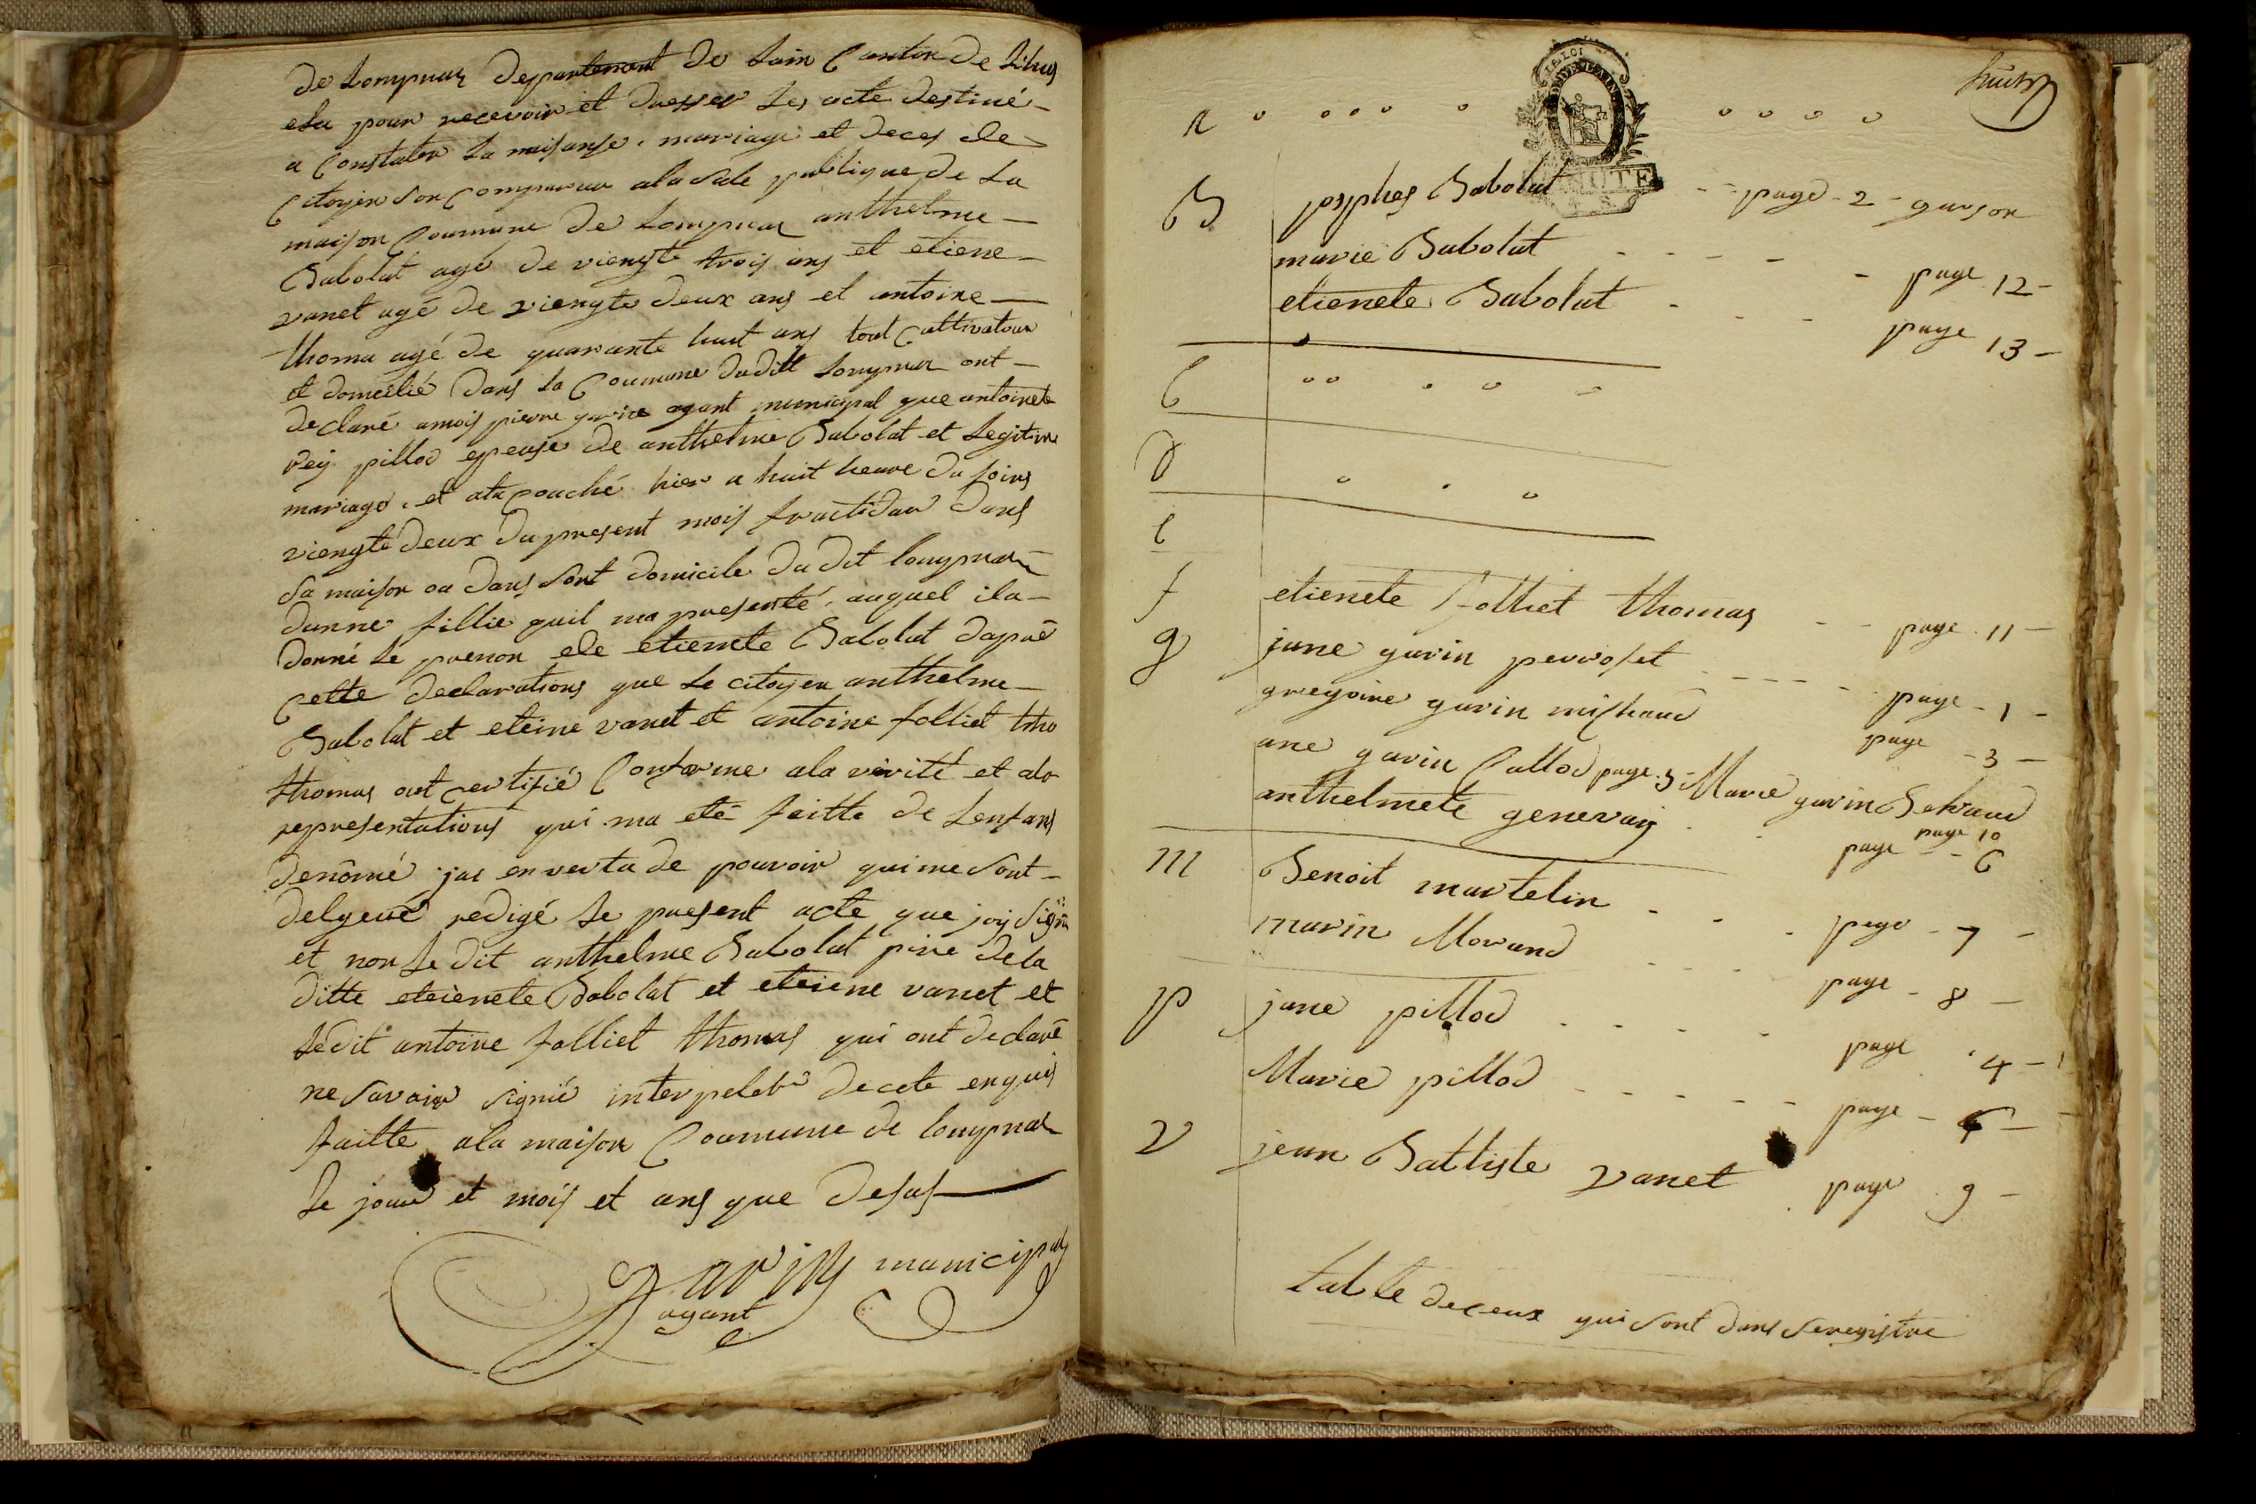 de Lompnaz departement de Lain Canton de Lhuis
elu pour recevoir et dresser Les acte destiné
a Constater La naisanse, mariage et deces de
Citoyen son Comparu a la sale publique de La
maison Coumune de Lompnaz anthelme
Babolat agé de viengte trois ans et etiene
vanet agé de viengte deux ans et antoine
thoma agé de quarante huit ans tout Cultivateur
et domcilié dans La Coumune dudit Lompnaz ont
declaré a mois pierre garin agant municipal que antoinete
rey pillod epeuse de anthelme Babolat et Legitime
mariage, et a la couché hier a huit heure du soirs
viengte deux du present mois fructidor dans
sa maison ou dans sont domicile du dit lompnaz
dunne fillie quil ma presenté, auquel ila
donné Le prenon de etienete Babolat dapré
cette declarations que Le citoyen anthelme
Babolat et eteine vanet et antoine folliet tho
thomas ont certifié Conforme a la vérité et a la
representations qui ma eté faitte de Lenfans
denomé jai en vertu de pouvoir qui me sont
delgeué redigé Le present acte que jay signé
et non Le dit anthelme Babolat pere de la
ditte eteienete Babolat et eteiene vanet et
Ledit antoine folliet thomas qui ont declaré
ne savoir signié interpelet de cete enquis
faitte a la maison Coumune de lompnaz
Le jour et mois et ans que desus
Garin municipal
agant
huit
a
B josephes Babolat page 2 garson
marie Babolat page 12
etienete Babolat page 13
C
D
e
f etienete folliet thomas page 11
g jane garin perroset page 1
gregoire garin mishaud page 3
ane garin Callod page 5 Marie garin Betraud page 10
anthelmete genevay page 6
m Benoit martelin page 7
marin Morand page 8
p jane pillod page 4
Marie pillod page
v jean Battiste vanet page 9
table de ceux qui sont dans se registre